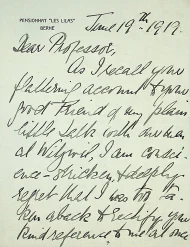 PENSIONNAT "LES LILAS"
BERNE
June 19th 1917.
Dear Professor,
As I recall your
flattering account to your
good Friend of my plain
little talk with
at I am consci-
ence-stricken & deeply
regret that I was too ta-
ken aback to rectify your
kind reference to me at once